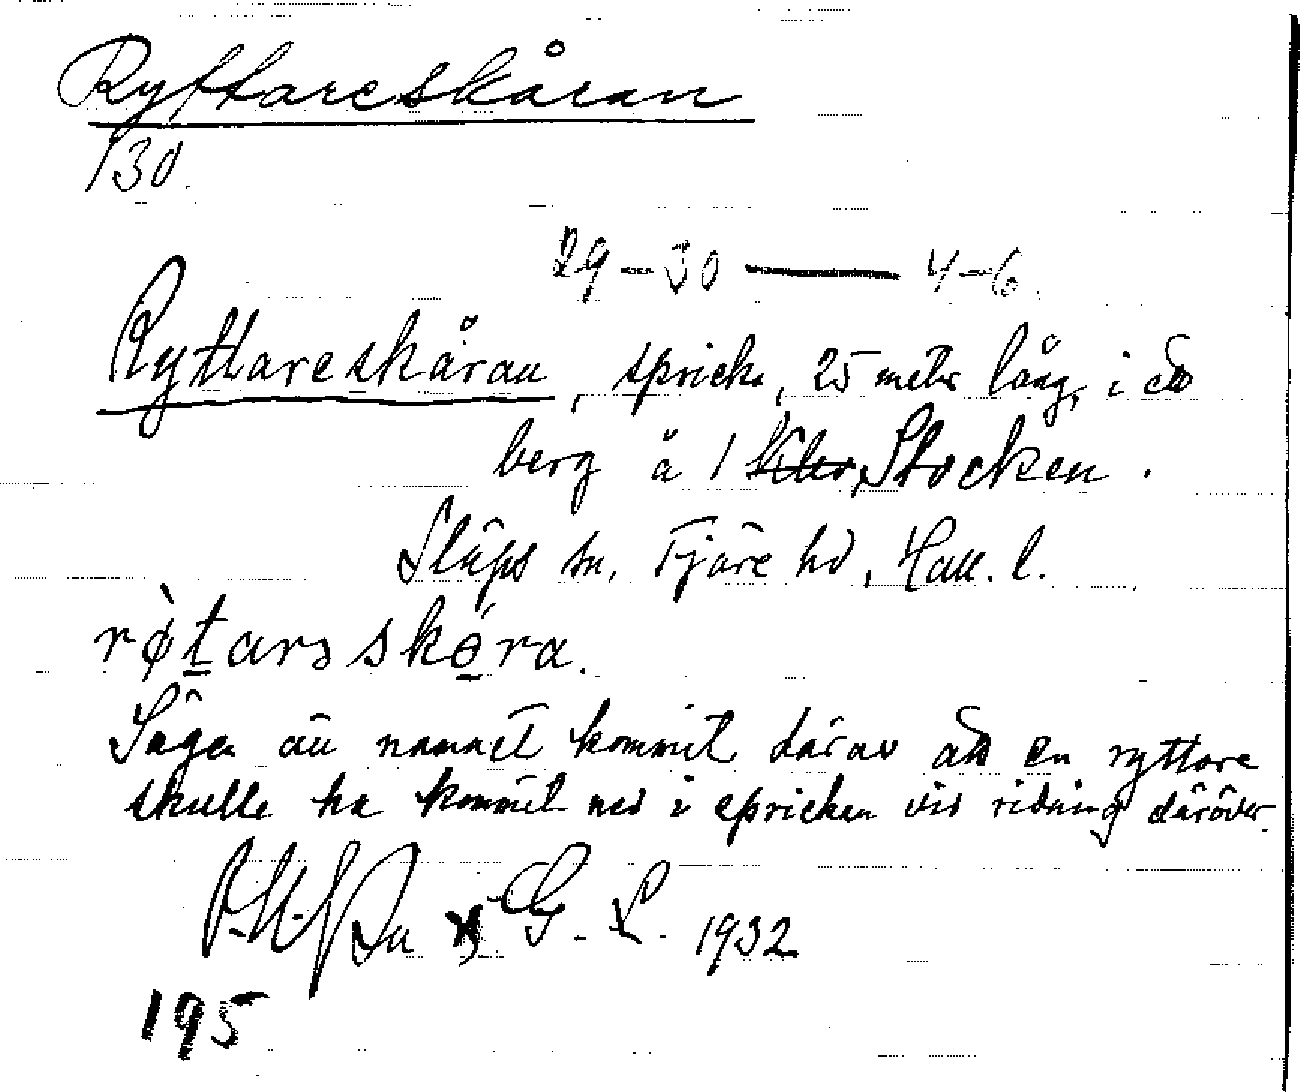 Ryttareskåran
130.
29–30 — 4–6.
Ryttareskåran, spricka, 25 meter lång, i ett
berg å 1 Stocken.
Släps sn, Fjäre hd, Hall. l.
Säges att namnet kommit därav att en ryttare
skulle ha kommit ned i sprickan vid ridning däröver.
G. L. 1932
195